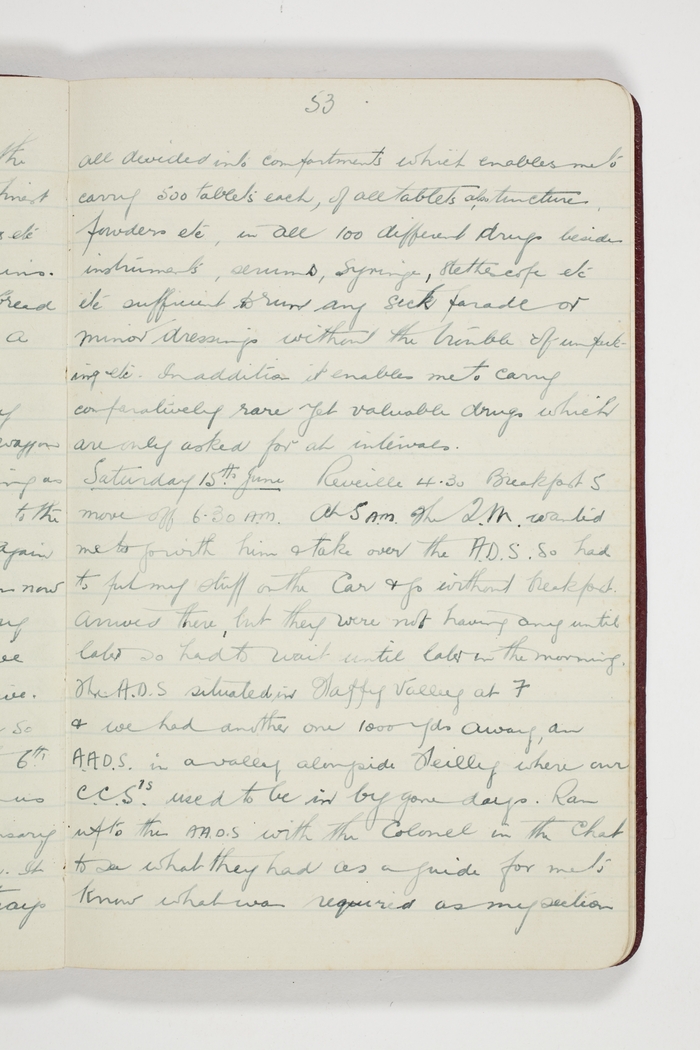 53
all divided into compartments which enables me to
carry 500 tablets each, of all tablets also tincture,
powders etc, in all 100 different drugs besides
instruments, serums, Syringe, Stethescope etc
etc sufficient to run any Sick parade or
minor dressings without the trouble of unpack-
ing etc. In addition it enables me to carry
comparatively rare yet valuable drugs which
are only asked for at intervals.
Saturday 15th June Reveille 4.30 Breakfast 5
move off 6.30 A.M. At 5 AM. The Q.M. wanted
me to go with him & take over the A.D.S. So had
to put my stuff on the Car & go without breakfast.
Arrived there, but they were not having any until
later so had to wait until later in the morning.
The A.D.S situated in Happy Valley at 7
& we had another one 1000 yds away, an
A.A.D.S. in a valley alongside Heilley where our
C.C.S's used to be in by gone days. Ran
up to the AA.D.S with the Colonel in the Chat
to see what they had as a guide for me to
know what was required as my section
the
etc
ins.
bread
a
waggon
ing as
to the
again
now
ive.
So
6th
us
. It